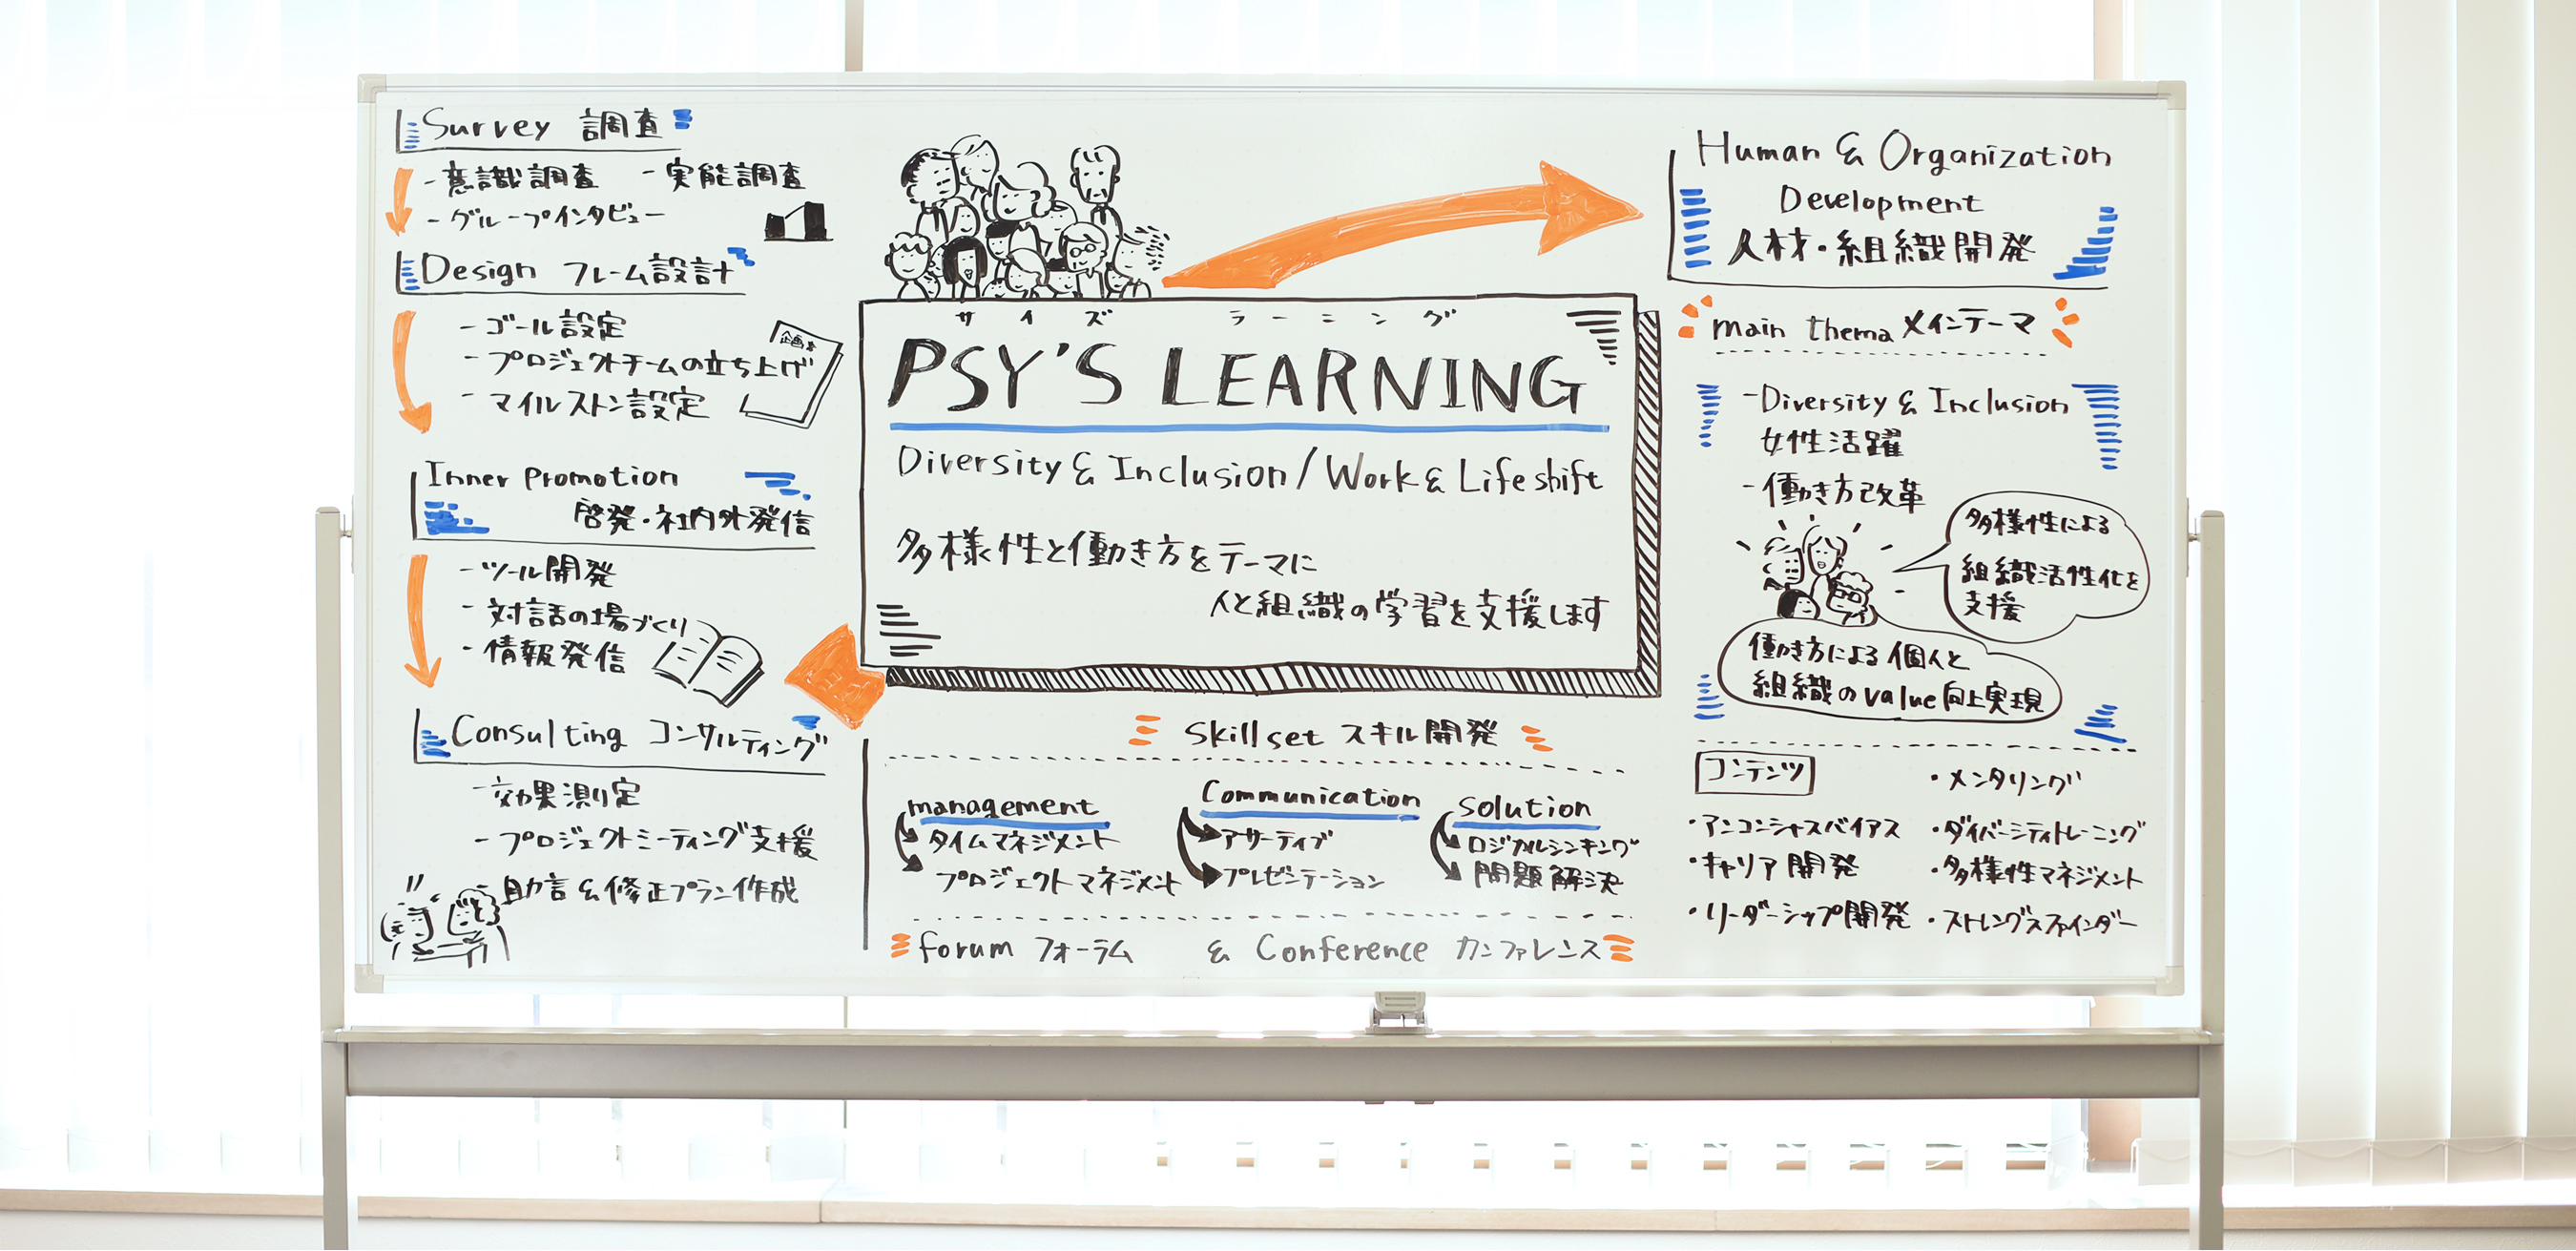 Survey 調査
- 意識調査 - 実態調査
- グループインタビュー
Design フレーム設計
- ゴール設定
- プロジェクトチームの立ち上げ
- マイルストン設定
企画書
Inner Promotion
啓発・社内外発信
- ツール開発
- 対話の場づくり
- 情報発信
Consulting コンサルティング
- 効果測定
- プロジェクトミーティング支援
助言&修正プラン作成
サイズ ラーニング
PSY'S LEARNING
Diversity & Inclusion / Work & Life shift
多様性と働き方をテーマに
人と組織の学習を支援します
Skill set スキル開発
management
タイムマネジメント
プロジェクトマネジメント
Communication
アサーティブ
プレゼンテーション
Solution
ロジカルシンキング
問題解決
forum フォーラム & Conference カンファレンス
Human & Organization
Development
人材・組織開発
main thema メインテーマ
- Diversity & Inclusion
女性活躍
- 働き方改革
多様性による
組織活性化を
支援
働き方による個人と
組織のvalue向上実現
コンテンツ
・アンコンシャスバイアス
・キャリア開発
・リーダーシップ開発
・メンタリング
・ダイバーシティトレーニング
・多様性マネジメント
・ストレングスファインダー